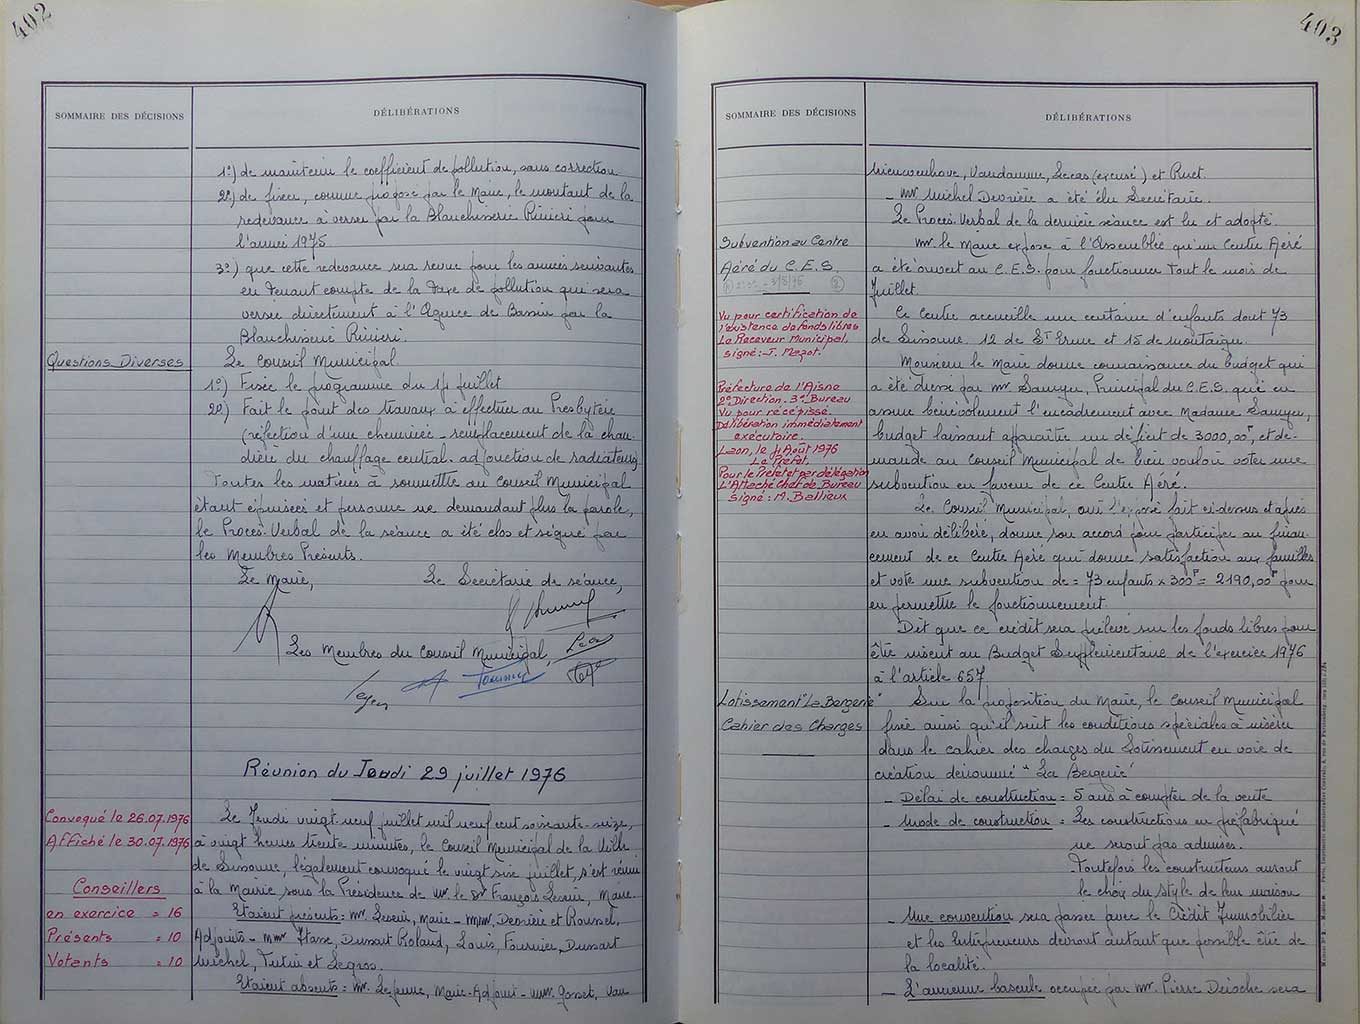 402
SOMMAIRE DES DÉCISIONS
DÉLIBÉRATIONS
1º) de maintenir le coefficient de pollution, sans correction
2º) de fixer, comme proposé par le Maire, le montant de la
redevance à verser par la Blanchisserie Rivieri pour
l'année 1975
3º) que cette redevance sera revue pour les années suivantes
en tenant compte de la taxe de pollution qui sera
versée directement à l'Agence de Bassin par la
Blanchisserie Rivieri.
Questions Diverses
Le Conseil Municipal.
1º) Fixe le programme du 14 juillet
2º) Fait le point des travaux à effectuer au Presbytère
(réfection d'une cheminée - remplacement de la chau-
dière du chauffage central. adjonction de radiateurs)
Toutes les matières à soumettre au Conseil Municipal
étant épuisées et personne ne demandant plus la parole,
le Procès-Verbal de la séance a été clos et signé par
les Membres Présents.
Le Maire, Le Secrétaire de séance,
Les Membres du Conseil Municipal,
Réunion du Jeudi 29 juillet 1976
Convoqué le 26.07.1976
Affiché le 30.07.1976
Conseillers
en exercice = 16
Présents = 10
Votants = 10
Le Jeudi vingt neuf juillet mil neuf cent soixante-seize,
à vingt heures trente minutes, le Conseil Municipal de la Ville
de Sissonne, légalement convoqué le vingt six juillet, s'est réuni
à la Mairie sous la Présidence de Mr le Dr François Lesur, Maire.
Etaient présents : Mr. Lesur, Maire - MM. Devrière et Roussel,
Adjoints - MM Hasse, Dussart Roland, Louis, Fournier, Dussart
Michel, Tutin et Legros.
Etaient absents : Mr. Lejeune, Maire-Adjoint - MM. Gosset, Van
403
SOMMAIRE DES DÉCISIONS
DÉLIBÉRATIONS
Nieuwenhove, Vandamme, Lecas (excusé) et Ruet.
- Mr Michel Devrière a été élu Secrétaire.
Le Procès-Verbal de la dernière séance est lu et adopté
Subvention au Centre
Aéré du C.E.S.
Mr. le Maire expose à l'Assemblée qu'un Centre Aéré
a été ouvert au C.E.S. pour fonctionner tout le mois de
Juillet.
Vu pour certification de
l'existence de fonds libres
Le Receveur Municipal,
signé : J. Mazot.
Ce Centre accueille une centaine d'enfants dont 73
de Sissonne. 12 de St Erme et 15 de Montaigu.
Monsieur le Maire donne connaissance du budget qui
a été dressé par Mr. Sauryn, Principal du C.E.S. qui en
assure bénévolement l'encadrement avec Madame Sauryn,
budget laissant apparaître un déficit de 3000,00F, et de-
mande au Conseil Municipal de bien vouloir voter une
subvention en faveur de ce Centre Aéré.
Préfecture de l'Aisne
2e Direction. 3e Bureau
Vu pour récépissé.
Délibération immédiatement
exécutoire.
Laon, le 4 Août 1976
Le Préfet,
Pour le Préfet et par délégation
L'Attaché Chef de Bureau
signé : M. Ballieux
Le Conseil Municipal, ouï l'exposé fait ci-dessus et après
en avoir délibéré, donne son accord pour participer au finan-
cement de ce Centre Aéré qui donne satisfaction aux familles
et vote une subvention de = 73 enfants x 300F = 2190,00F pour
en permettre le fonctionnement.
Dit que ce crédit sera prélevé sur les fonds libres pour
être inscrit au Budget Supplémentaire de l'exercice 1976
à l'article 657
Lotissement "La Bergerie"
Cahier des Charges
Sur la proposition du Maire, le Conseil Municipal
fixe ainsi qu'il suit les conditions spéciales à insérer
dans le cahier des charges du Lotissement en voie de
création dénommé "La Bergerie"
- Délai de construction = 5 ans à compter de la vente
- Mode de construction = Les constructions en préfabriqué
ne seront pas admises.
Toutefois les constructeurs auront
le choix du style de leur maison
- Une convention sera passée avec le Crédit Immobilier
et les Entrepreneurs devront autant que possible être de
la localité.
- L'ancienne bascule occupée par Mr. Pierre Deioche sera